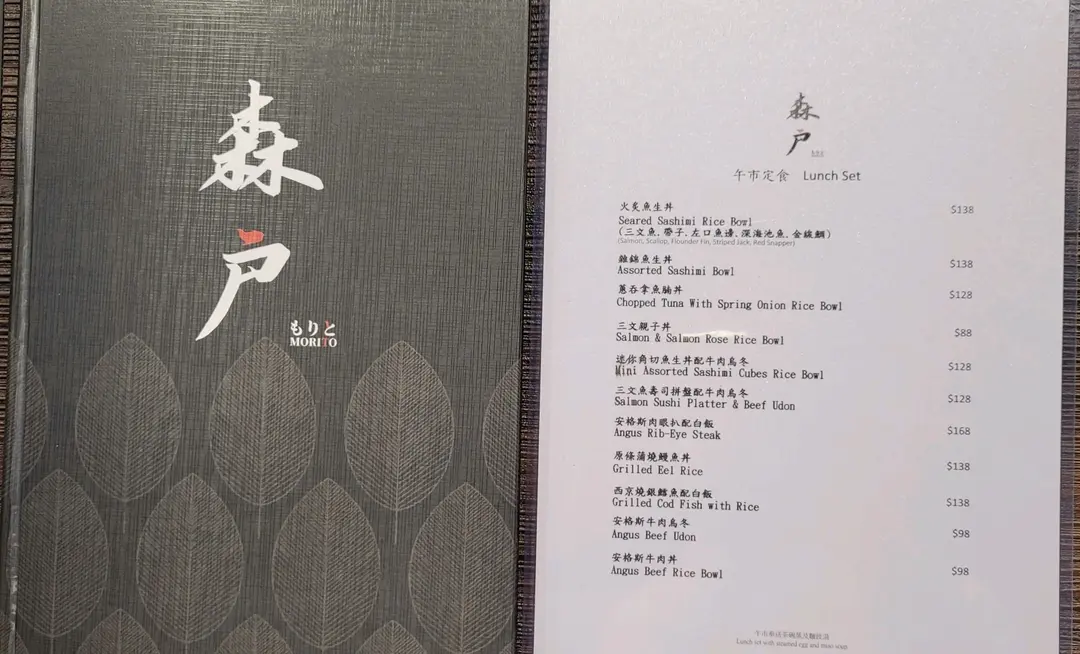 森
戸
もりと
MORITO
森
戸
午市定食 Lunch Set
火炙魚生丼 $138
Seared Sashimi Rice Bowl
(三文魚.帶子.左口魚邊.深海池魚.金線鯛)
(Salmon, Scallop, Flounder Fin, Striped Jack, Red Snapper)
雜錦魚生丼 $138
Assorted Sashimi Bowl
蔥吞拿魚腩丼 $128
Chopped Tuna With Spring Onion Rice Bowl
三文親子丼 $88
Salmon & Salmon Rose Rice Bowl
迷你角切魚生丼配牛肉烏冬 $128
Mini Assorted Sashimi Cubes Rice Bowl
三文魚壽司拼盤配牛肉烏冬 $128
Salmon Sushi Platter & Beef Udon
安格斯肉眼扒配白飯 $168
Angus Rib-Eye Steak
原條蒲燒鰻魚丼 $138
Grilled Eel Rice
西京燒銀鱈魚配白飯 $138
Grilled Cod Fish with Rice
安格斯牛肉烏冬 $98
Angus Beef Udon
安格斯牛肉丼 $98
Angus Beef Rice Bowl
Lunch set with steamed egg and miso soup